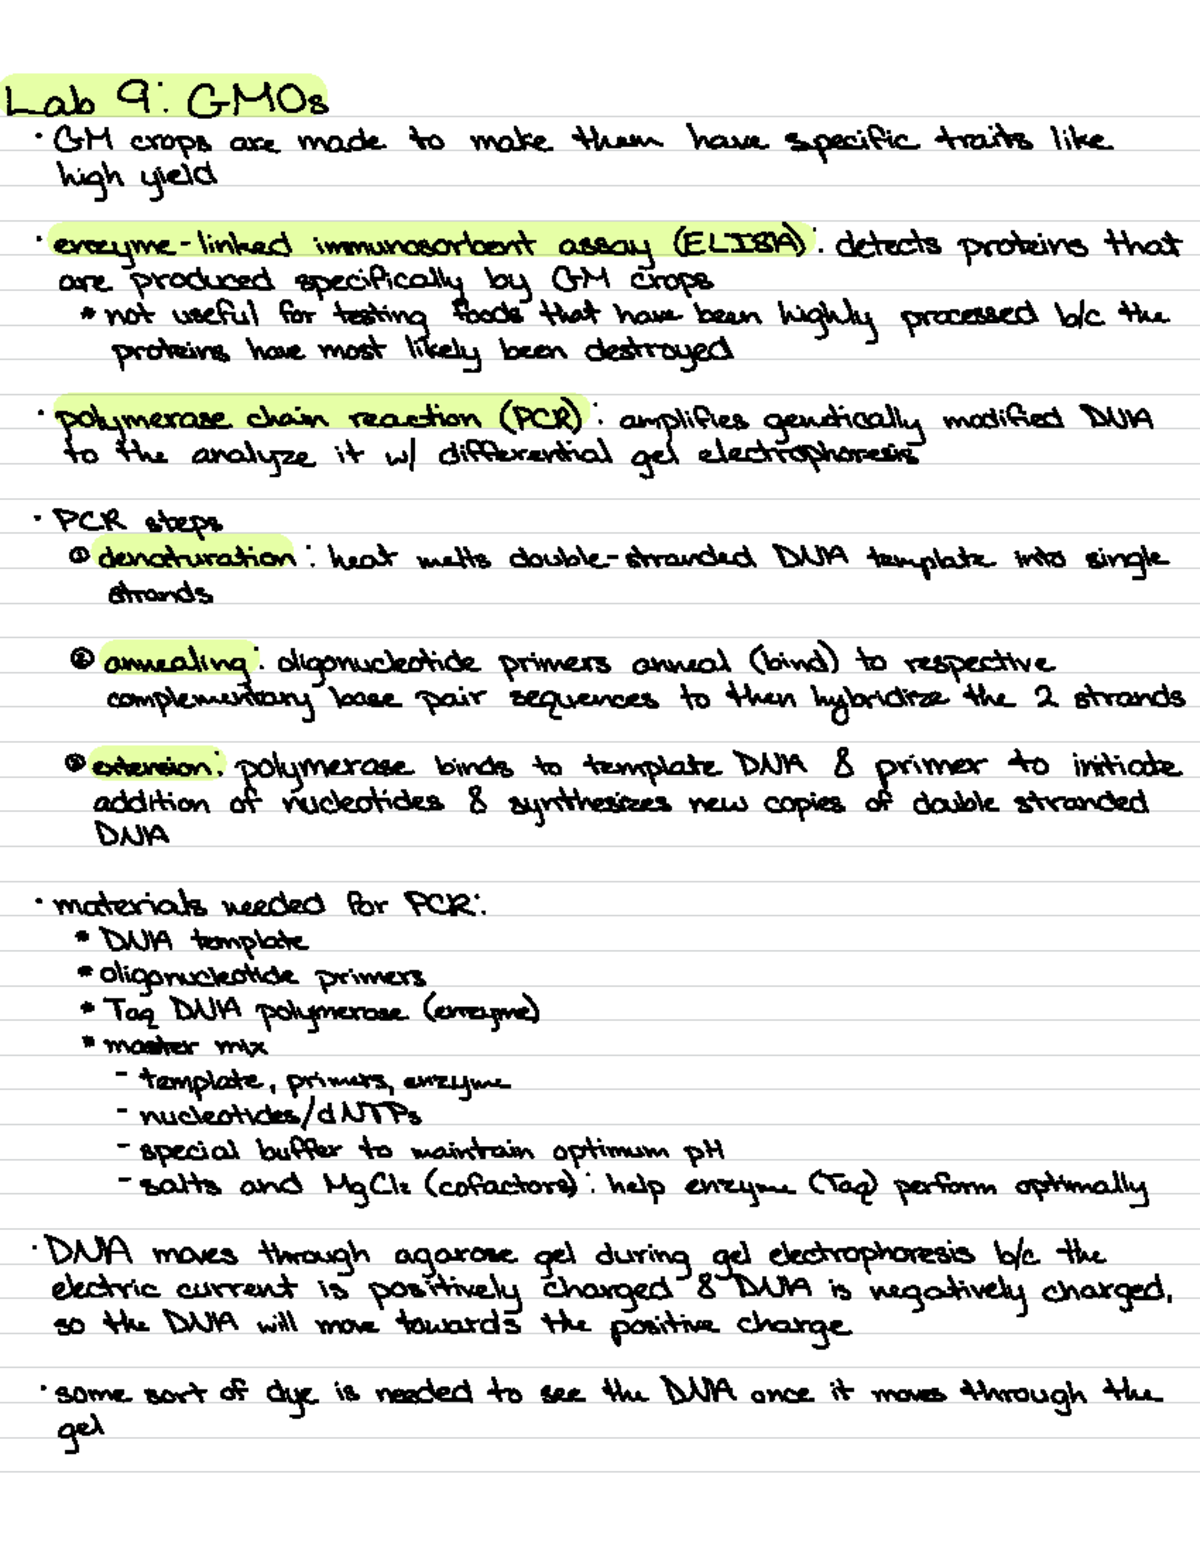 Lab 9: GMOs
· GM crops are made to make them have specific traits like
high yield
· enzyme-linked immunosorbent assay (ELISA): detects proteins that
are produced specifically by GM crops
* not useful for testing foods that have been highly processed b/c the
proteins have most likely been destroyed
· polymerase chain reaction (PCR): amplifies genetically modified DNA
to the analyze it w/ differential gel electrophoresis
· PCR steps
① denaturation: heat melts double-stranded DNA template into single
strands
② annealing: oligonucleotide primers anneal (bind) to respective
complementary base pair sequences to then hybridize the 2 strands
③ extension: polymerase binds to template DNA & primer to initiate
addition of nucleotides & synthesizes new copies of double stranded
DNA
· materials needed for PCR:
* DNA template
* oligonucleotide primers
* Taq DNA polymerase (enzyme)
* master mix
- template, primers, enzyme
- nucleotides/dNTPs
- special buffer to maintain optimum pH
- salts and MgCl₂ (cofactors): help enzyme (Taq) perform optimally
· DNA moves through agarose gel during gel electrophoresis b/c the
electric current is positively charged & DNA is negatively charged,
so the DNA will move towards the positive charge
· some sort of dye is needed to see the DNA once it moves through the
gel